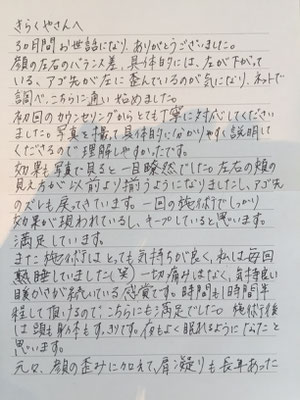 きらくやさんへ
3ヵ月間お世話になり、ありがとうございました。
顔の左右のバランス差、具体的には、左が下がって
いる、アゴ先が左に歪んているのが気になり、ネットで
調べ、こちらに通い始めました。
初回のカウンセリングからとても丁寧に対応してください
ました。写真を撮って具体的に分かりやすく説明して
くださるので理解しやすかったです。
効果も写真で見ると一目瞭然でした。左右の頬の
見え方が以前より揃うようになりましたし、アゴ先
のズレも戻ってきています。一回の施術でしっかり
効果が現われているし、キープしていると思います。
満足しています。
また施術はとっても気持ちが良く、私は毎回
熟睡していました(笑) 一切痛みはなく、気持良い
暖かさが続いている感覚です。時間も1時間半
程して頂けるので、こちらにも満足でした。施術後
は頭も身体もすっきりです。夜もよく眠れるようになったと
思います。
元々、顔の歪みに加えて、肩凝りも長年あった